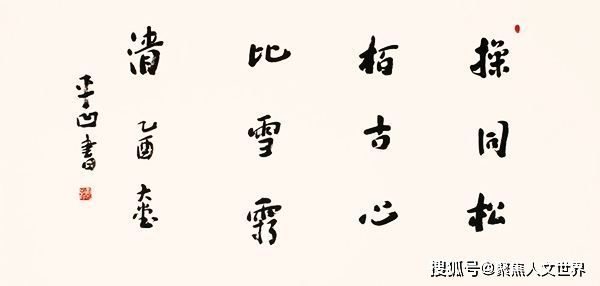 操同松
栢古心
比雪霜
清 乙酉 大堂
平凹書
搜狐号@聚焦人文世界